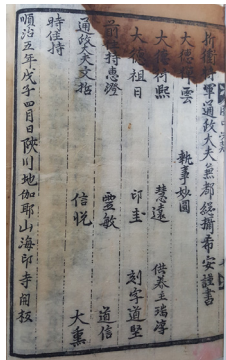 折衝將軍通政大夫兼都捴攝希安謹書
大德 雲 執事妙圓
大德 熙 慧遠 供養主瑞淳
大德祖日 印圭 刻字道堅
前住持惠澄 靈敏 道信
通政大夫文括 信悦
時住持 大熏
順治五年戊子四月日陜川地伽耶山海印寺開板